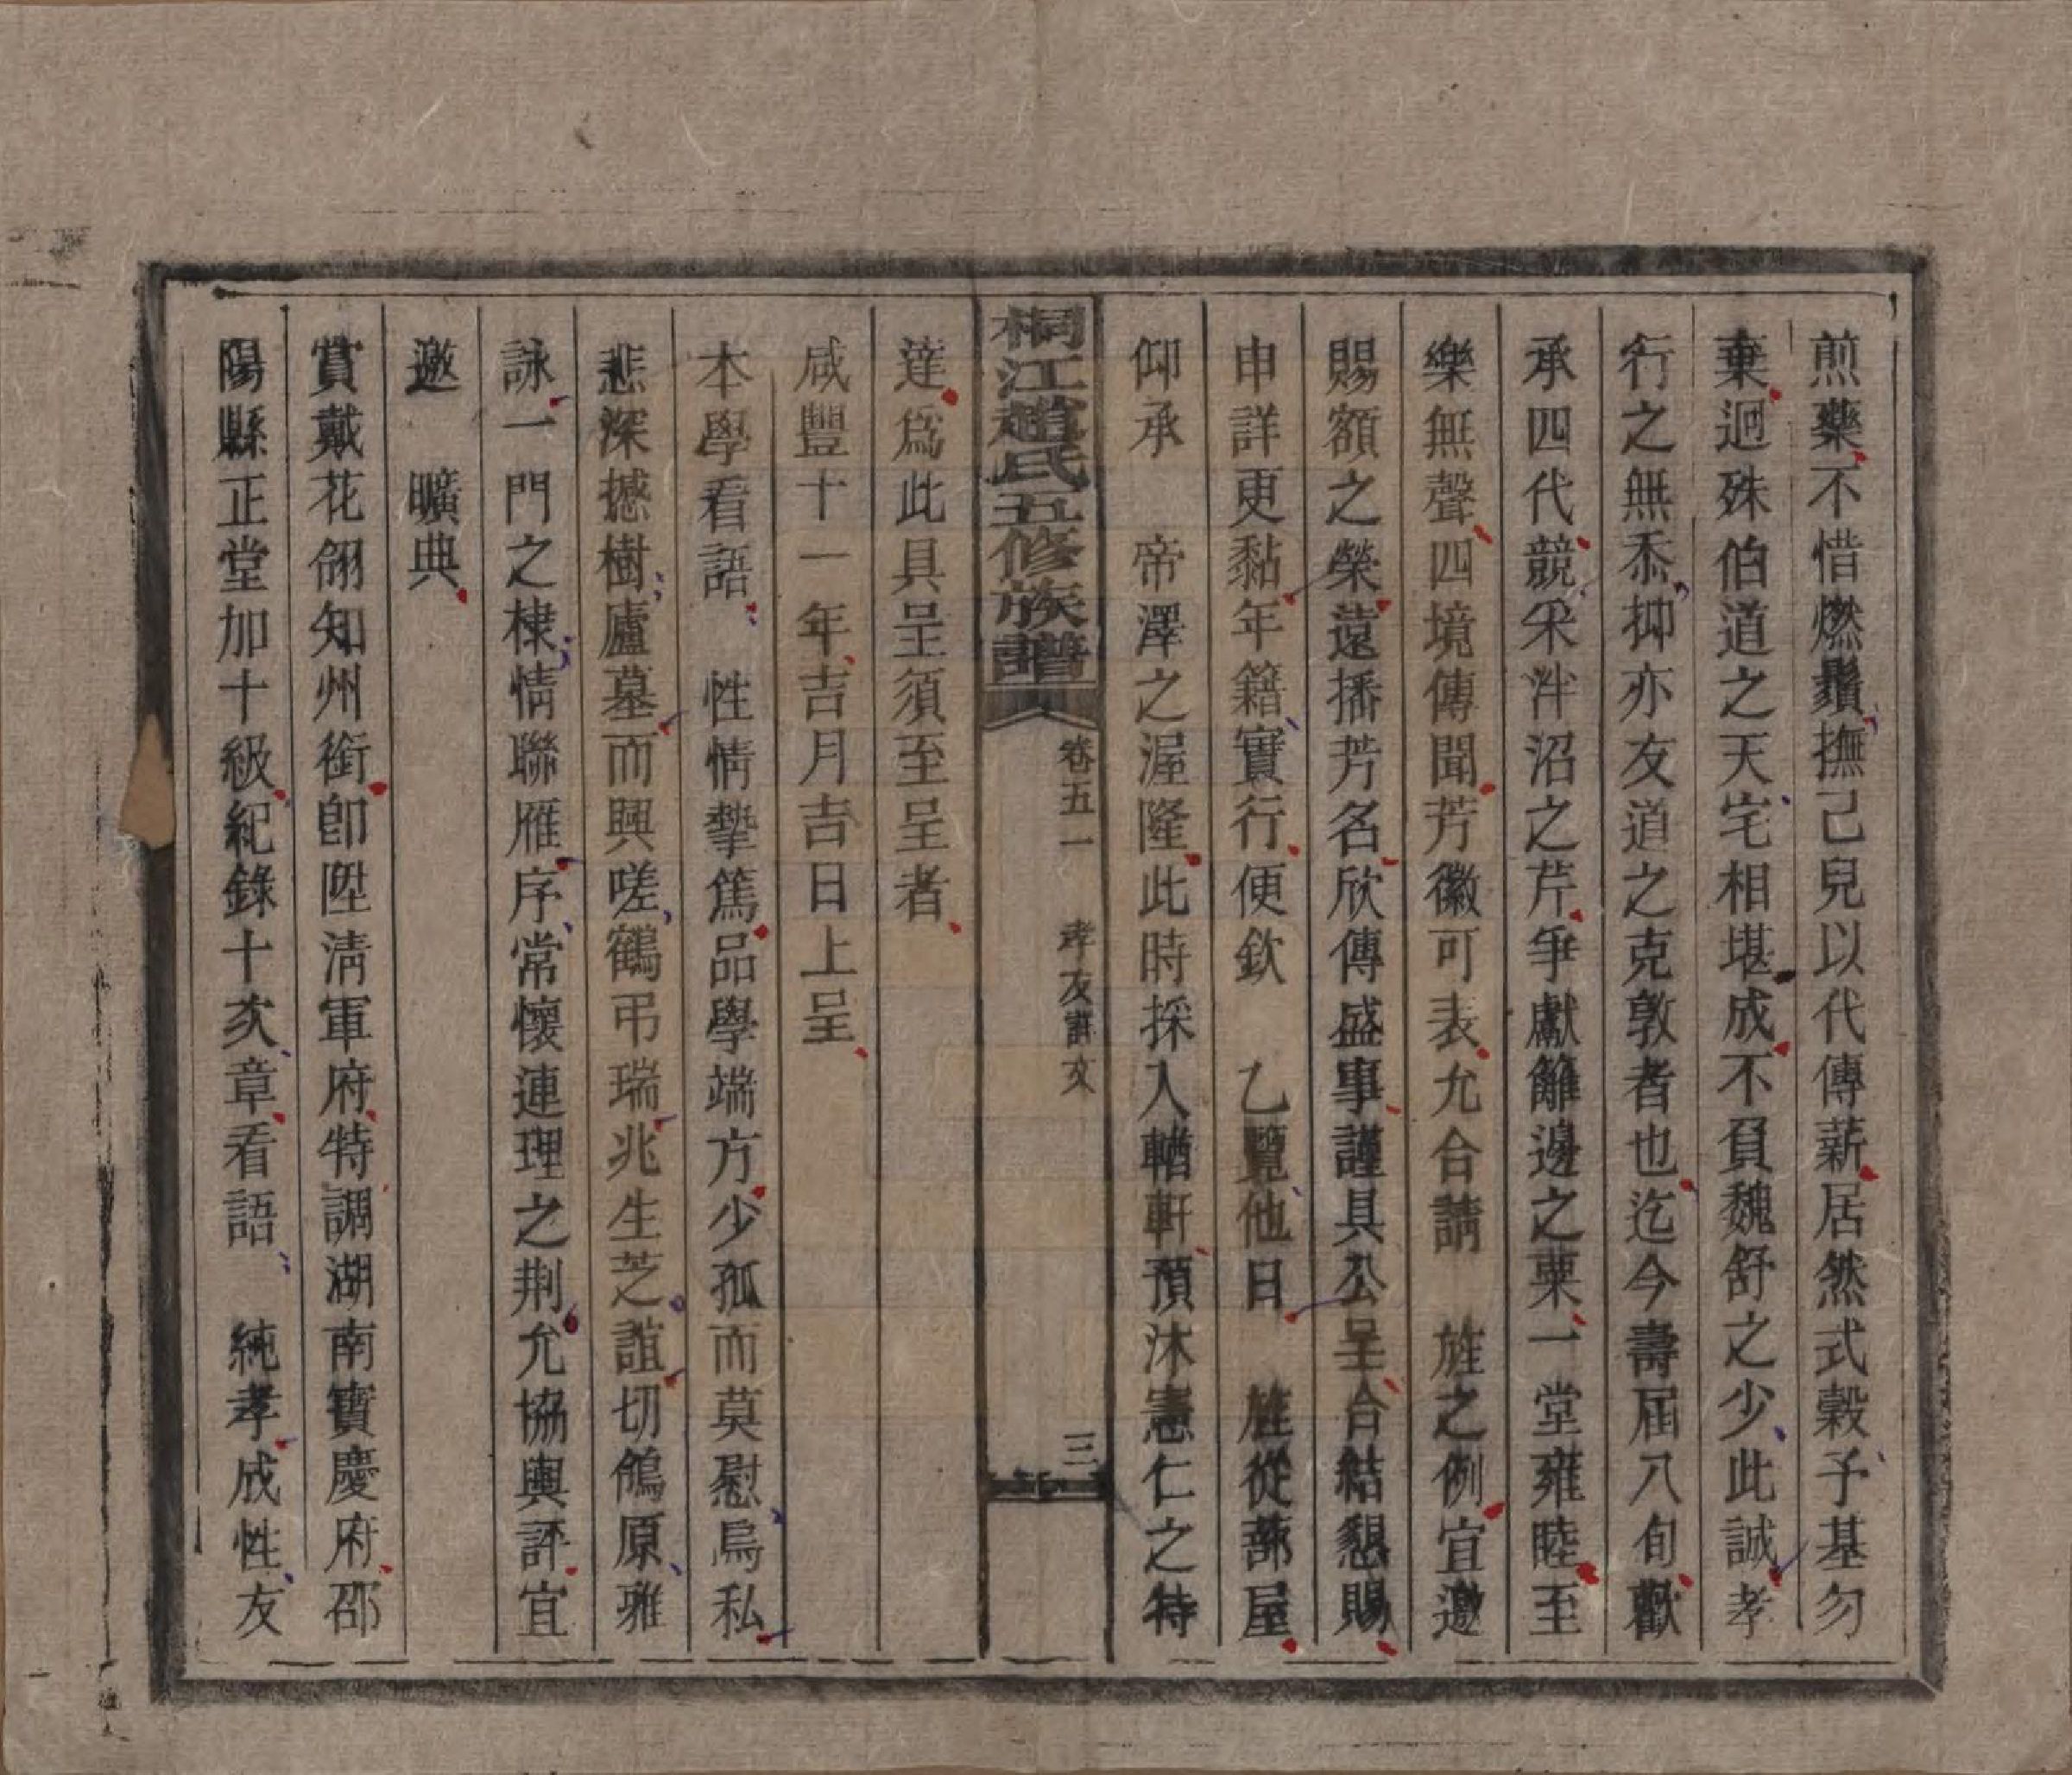 煎藥不惜燃鬚撫己兒以代傳薪居然式穀子基勿
棄迥殊伯道之天宅相堪成不負魏舒之少此誠孝
行之無忝抑亦友道之克敦者也迄今壽屆八旬歡
承四代競采泮沼之芹爭獻籬邊之粟一堂雍睦至
樂無聲四境傳聞芳徽可表允合請　旌之例宜邀
賜額之榮遠播芳名欣傳盛事謹具公呈合結懇賜
申詳更黏年籍實行便欽　乙覽他日　旌從蔀屋
仰承　帝澤之渥隆此時採入輶軒預沐憲仁之特
桐江趙氏五修族譜
卷五一　孝友壽文
三
達爲此具呈須至呈者
咸豐十一年吉月吉日上呈
本學看語　性情摯篤品學端方少孤而莫慰烏私
悲深撼樹廬墓而興嗟鶴弔瑞兆生芝誼切鴒原雅
詠一門之棣情聯雁序常懷連理之荆允協輿評宜
邀　曠典
賞戴花翎知州銜卽陞淸軍府特調湖南寶慶府邵
陽縣正堂加十級紀錄十次章看語　純孝成性友